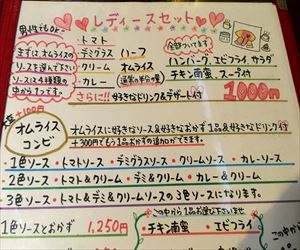 レディースセット
男性でもOK!
まずは、オムライスの
ソースを選んで下さい
ソースは4種類の
中から1つです。
・トマト
・デミグラス
・クリーム
・カレー
ハーフ
オムライス
(通常の半分の量)
全部ついてます
ハンバーグ、エビフライ、サラダ
チキン南蛮 スープ付
さらに!! お好きなドリンク&デザート付
1000円
大盛+100円
オムライス
コンビ
オムライスにお好きなソース&お好きなおかず1品&お好きなドリンク付
+300円でもう1品おかずの追加ができます。
1色ソース・トマトソース・デミグラスソース・クリームソース・カレーソース
2色ソース・トマト&クリーム・トマト&デミ・カレー&クリーム
3色ソース・トマト&デミ&クリームソースの3色ソースになります。
この中から1品お選び下さいませ
1色ソースとおかず 1,250円
・チキン南蛮 ・エビフライ